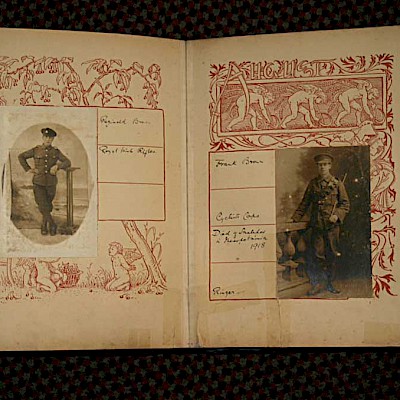 Reginald Brown
Royal Irish Rifles
AUGUST
Frank Brown
Cyclist Corps
Died of
in Mesopotamia
1918